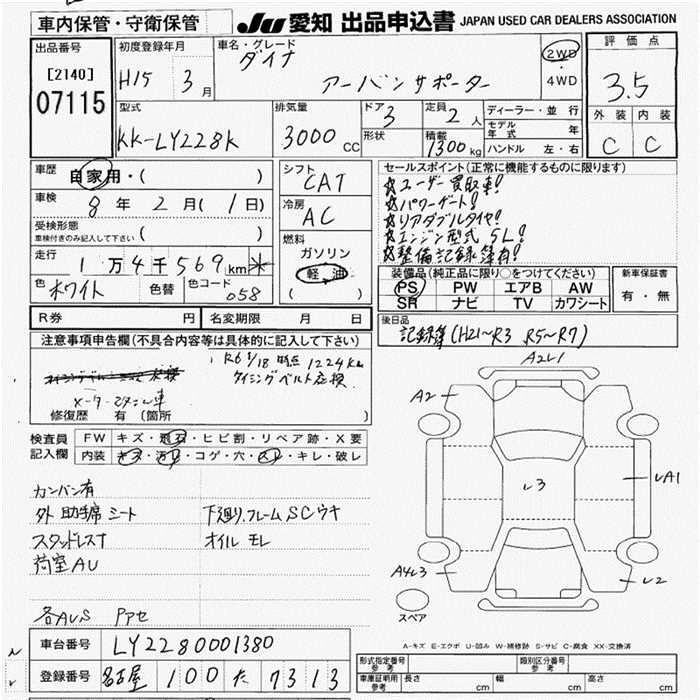 車内保管・守衛保管
JU 愛知 出品申込書 JAPAN USED CAR DEALERS ASSOCIATION
出品番号
[2140]
07115
初度登録年月
H15 3月
車名・グレード
ダイナ
アーバンサポーター
2WD
・
4WD
評価点
3.5
外装 内装
C C
型式
KK-LY228K
排気量
3000cc
ドア
3
形状
定員
2人
積載
1300kg
ディーラー・並行
モデル年式 年
ハンドル 左・右
車歴
自家用・( )
車検
8年 2月 (1日)
受検形態
車検付きのみ記入して下さい ( )
走行
1万4千569km
色
ホワイト
色替
色コード
058
シフト
CAT
冷房
AC
燃料
ガソリン
軽油
( )
セールスポイント(正常に機能するものに限ります)
☆ユーザー買取車!
☆パワーゲート!
☆リアダブルタイヤ!
☆エンジン型式 5L!
☆整備記録簿有!
装備品(純正品に限り○をつけてください)
PS PW エアB AW
SR ナビ TV カワシート
新車保証書
有・無
R券 円
名変期限 月 日
後日品
記録簿(H21~R3 R5~R7)
注意事項申告欄(不具合内容等は具体的に記入して下さい)
R6 1/18 時点 1224km
タイミングベルト交換
修復歴 有(箇所 )
検査員
記入欄
FW キズ・飛石・ヒビ割・リペア跡・X要
内装 キズ・汚れ・コゲ・穴・スレ・キレ・破レ
カンバン有
外 助手席シート 下廻り、フレームSCウキ
スタッドレスT オイルモレ
荷室AU
各AUS Pアセ
A2レ1
A2
レ3
レA1
A4レ3
レ2
スペア
A-キズ E-エクボ U-凹み W-補修跡 S-サビ C-腐食 XX-交換済
車台番号
LY2280001380
登録番号
名古屋 100 た 7313
形式指定番号
参考
類別区分番号
参考
車庫証明用
参考
長さ cm 幅 cm 高さ cm